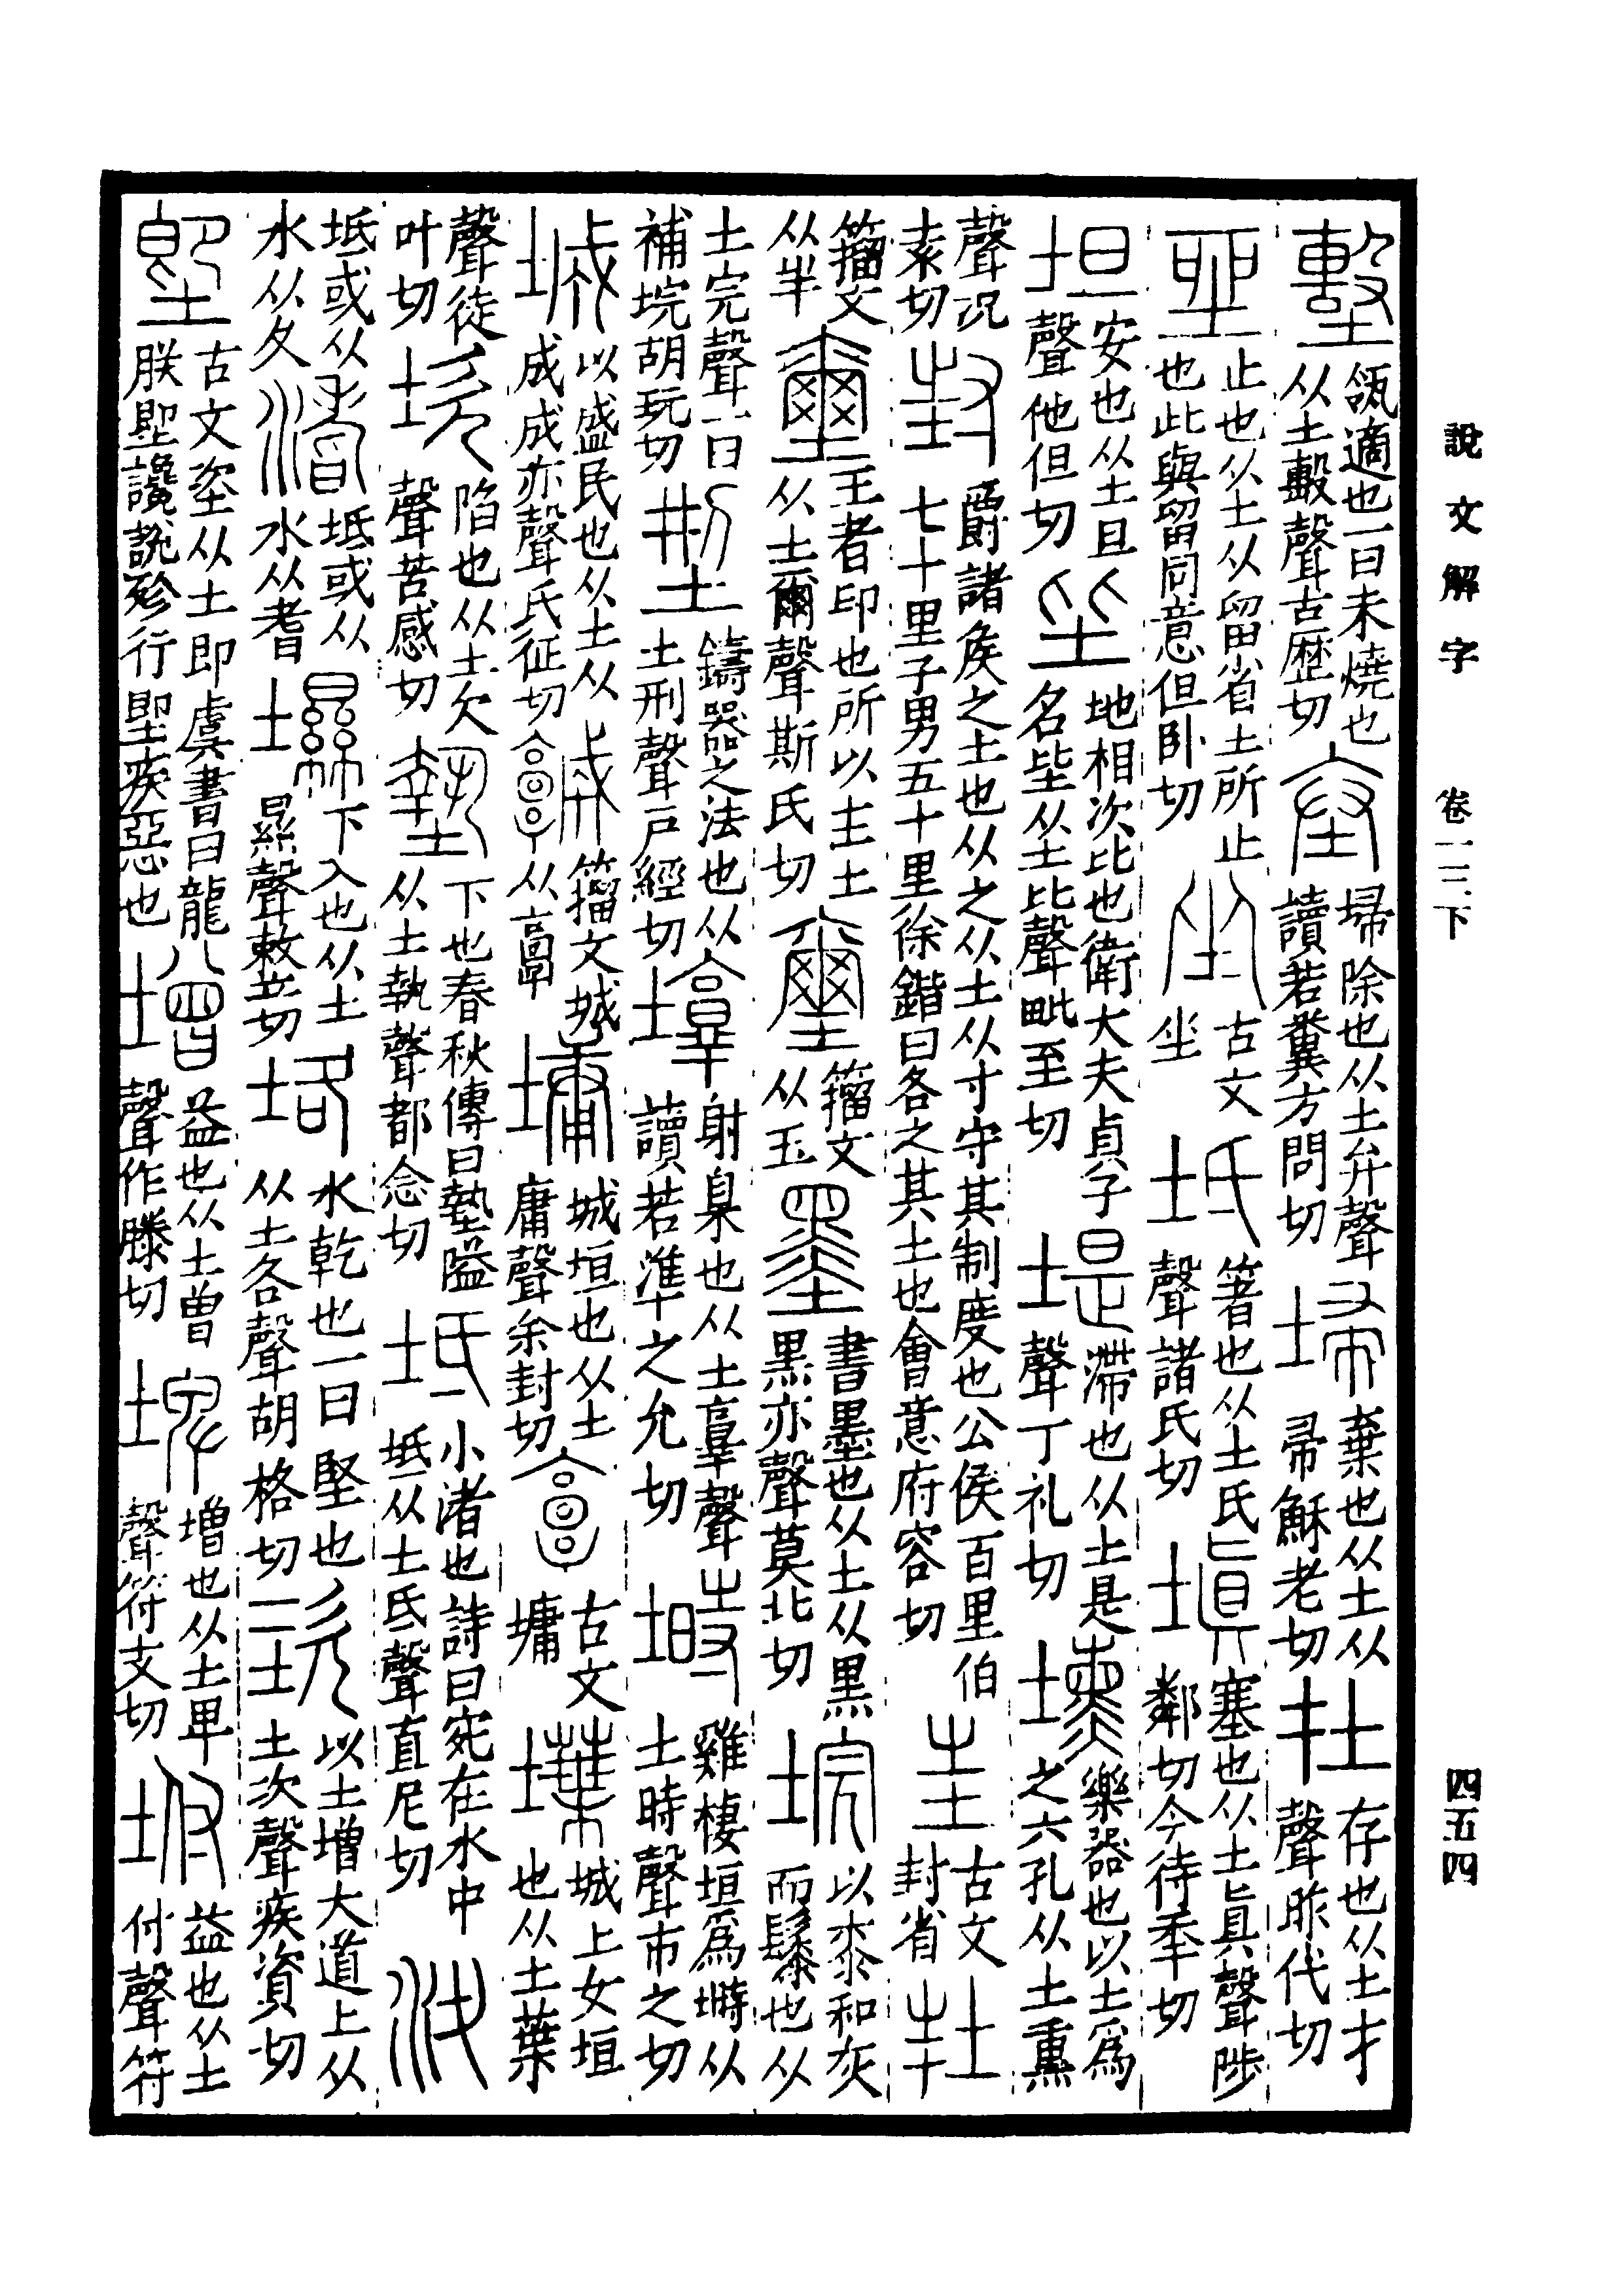 說文解字 卷一三下 四五四
墼瓴適也一曰未燒也从土毄聲古歷切𡊅掃除也从土弁聲讀若糞方問切埽棄也从土从帚穌老切在存也从土才聲昨代切
𡋲止也从土从留省土所止也此與留同意但臥切坐古文坐坻箸也从土氏聲諸氏切塡塞也从土眞聲陟鄰切今待秊切
坦安也从土旦聲他但切坒地相次比也衛大夫貞子名坒从土比聲毗至切堤滯也从土是聲丁礼切壎樂器也以土爲之六孔从土熏
聲況袁切封爵諸矦之土也从之从土从寸守其制度也公侯百里伯七十里子男五十里徐鍇曰各之其土也會意府容切𡉚古文封省𡊋
籒文从丰壐王者印也所以主土从土爾聲斯氏切璽籒文从玉墨書墨也从土从黑黑亦聲莫北切垸以桼和灰而䰍也从
土完聲一曰補垸胡玩切型鑄器之法也从土刑聲戶經切埻射臬也从土𦎫聲讀若準之允切塒雞棲垣爲塒从土時聲市之切
城以盛民也从土从成成亦聲氏征切𩫨籒文城从𩫏墉城垣也从土庸聲余封切𩫏古文墉堞城上女垣也从土葉
聲徒叶切坎陷也从土欠聲苦感切墊下也春秋傳曰墊隘从土執聲都念切坻小渚也詩曰宛在水中坻从土氐聲直尼切汷
坻或从水从夂渚坻或从水从耆㙷下入也从土㬎聲敕立切垎水乾也一曰堅也从土各聲胡格切垐以土增大道上从土次聲疾資切
堲古文垐从土即虞書曰龍朕堲讒說殄行堲疾惡也增益也从土曾聲作滕切埤增也从土卑聲符支切坿益也从土付聲符